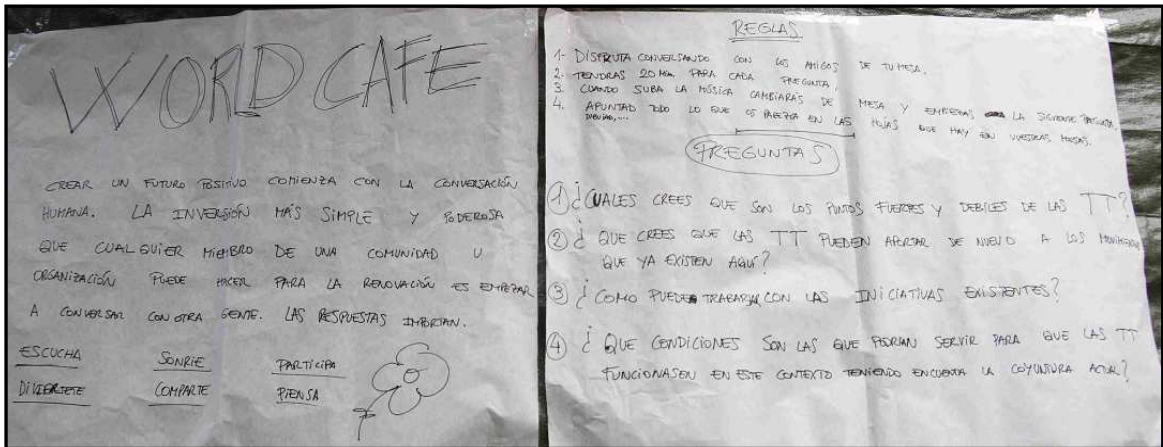 WORD CAFE
CREAR UN FUTURO POSITIVO COMIENZA CON LA CONVERSACIÓN
HUMANA. LA INVERSIÓN MÁS SIMPLE Y PODEROSA
QUE CUALQUIER MIEMBRO DE UNA COMUNIDAD U
ORGANIZACIÓN PUEDE HACER PARA LA RENOVACIÓN ES EMPEZAR
A CONVERSAR CON OTRA GENTE. LAS RESPUESTAS IMPORTAN.
ESCUCHA SONRIE PARTICIPA
DIVIERTETE COMPARTE PIENSA
REGLAS
1- DISFRUTA CONVERSANDO CON LOS AMIGOS DE TU MESA.
2- TENDRAS 20 Min PARA CADA PREGUNTA.
3. CUANDO SUBA LA MÚSICA CAMBIARÁS DE MESA Y EMPIEZAS LA SIGUIENTE PREGUNTA.
4. APUNTAD TODO LO QUE OS PAREZCA EN LAS HOJAS QUE HAY EN VUESTRAS MESAS.
DIBUJAD,....
PREGUNTAS
1 ¿CUALES CREES QUE SON LOS PUNTOS FUERTES Y DEBILES DE LAS TT?
2 ¿ QUE CREES QUE LAS TT PUEDEN APORTAR DE NUEVO A LOS
QUE YA EXISTEN AQUÍ?
3 ¿ COMO PUEDE TRABARJAR CON LAS INICIATIVAS EXISTENTES?
4 ¿ QUE CONDICIONES SON LAS QUE PODRIAN SERVIR PARA QUE LAS TT
FUNCIONASEN EN ESTE CONTEXTO TENIENDO ENCUENTA LA COYUNTURA ACTUAL?